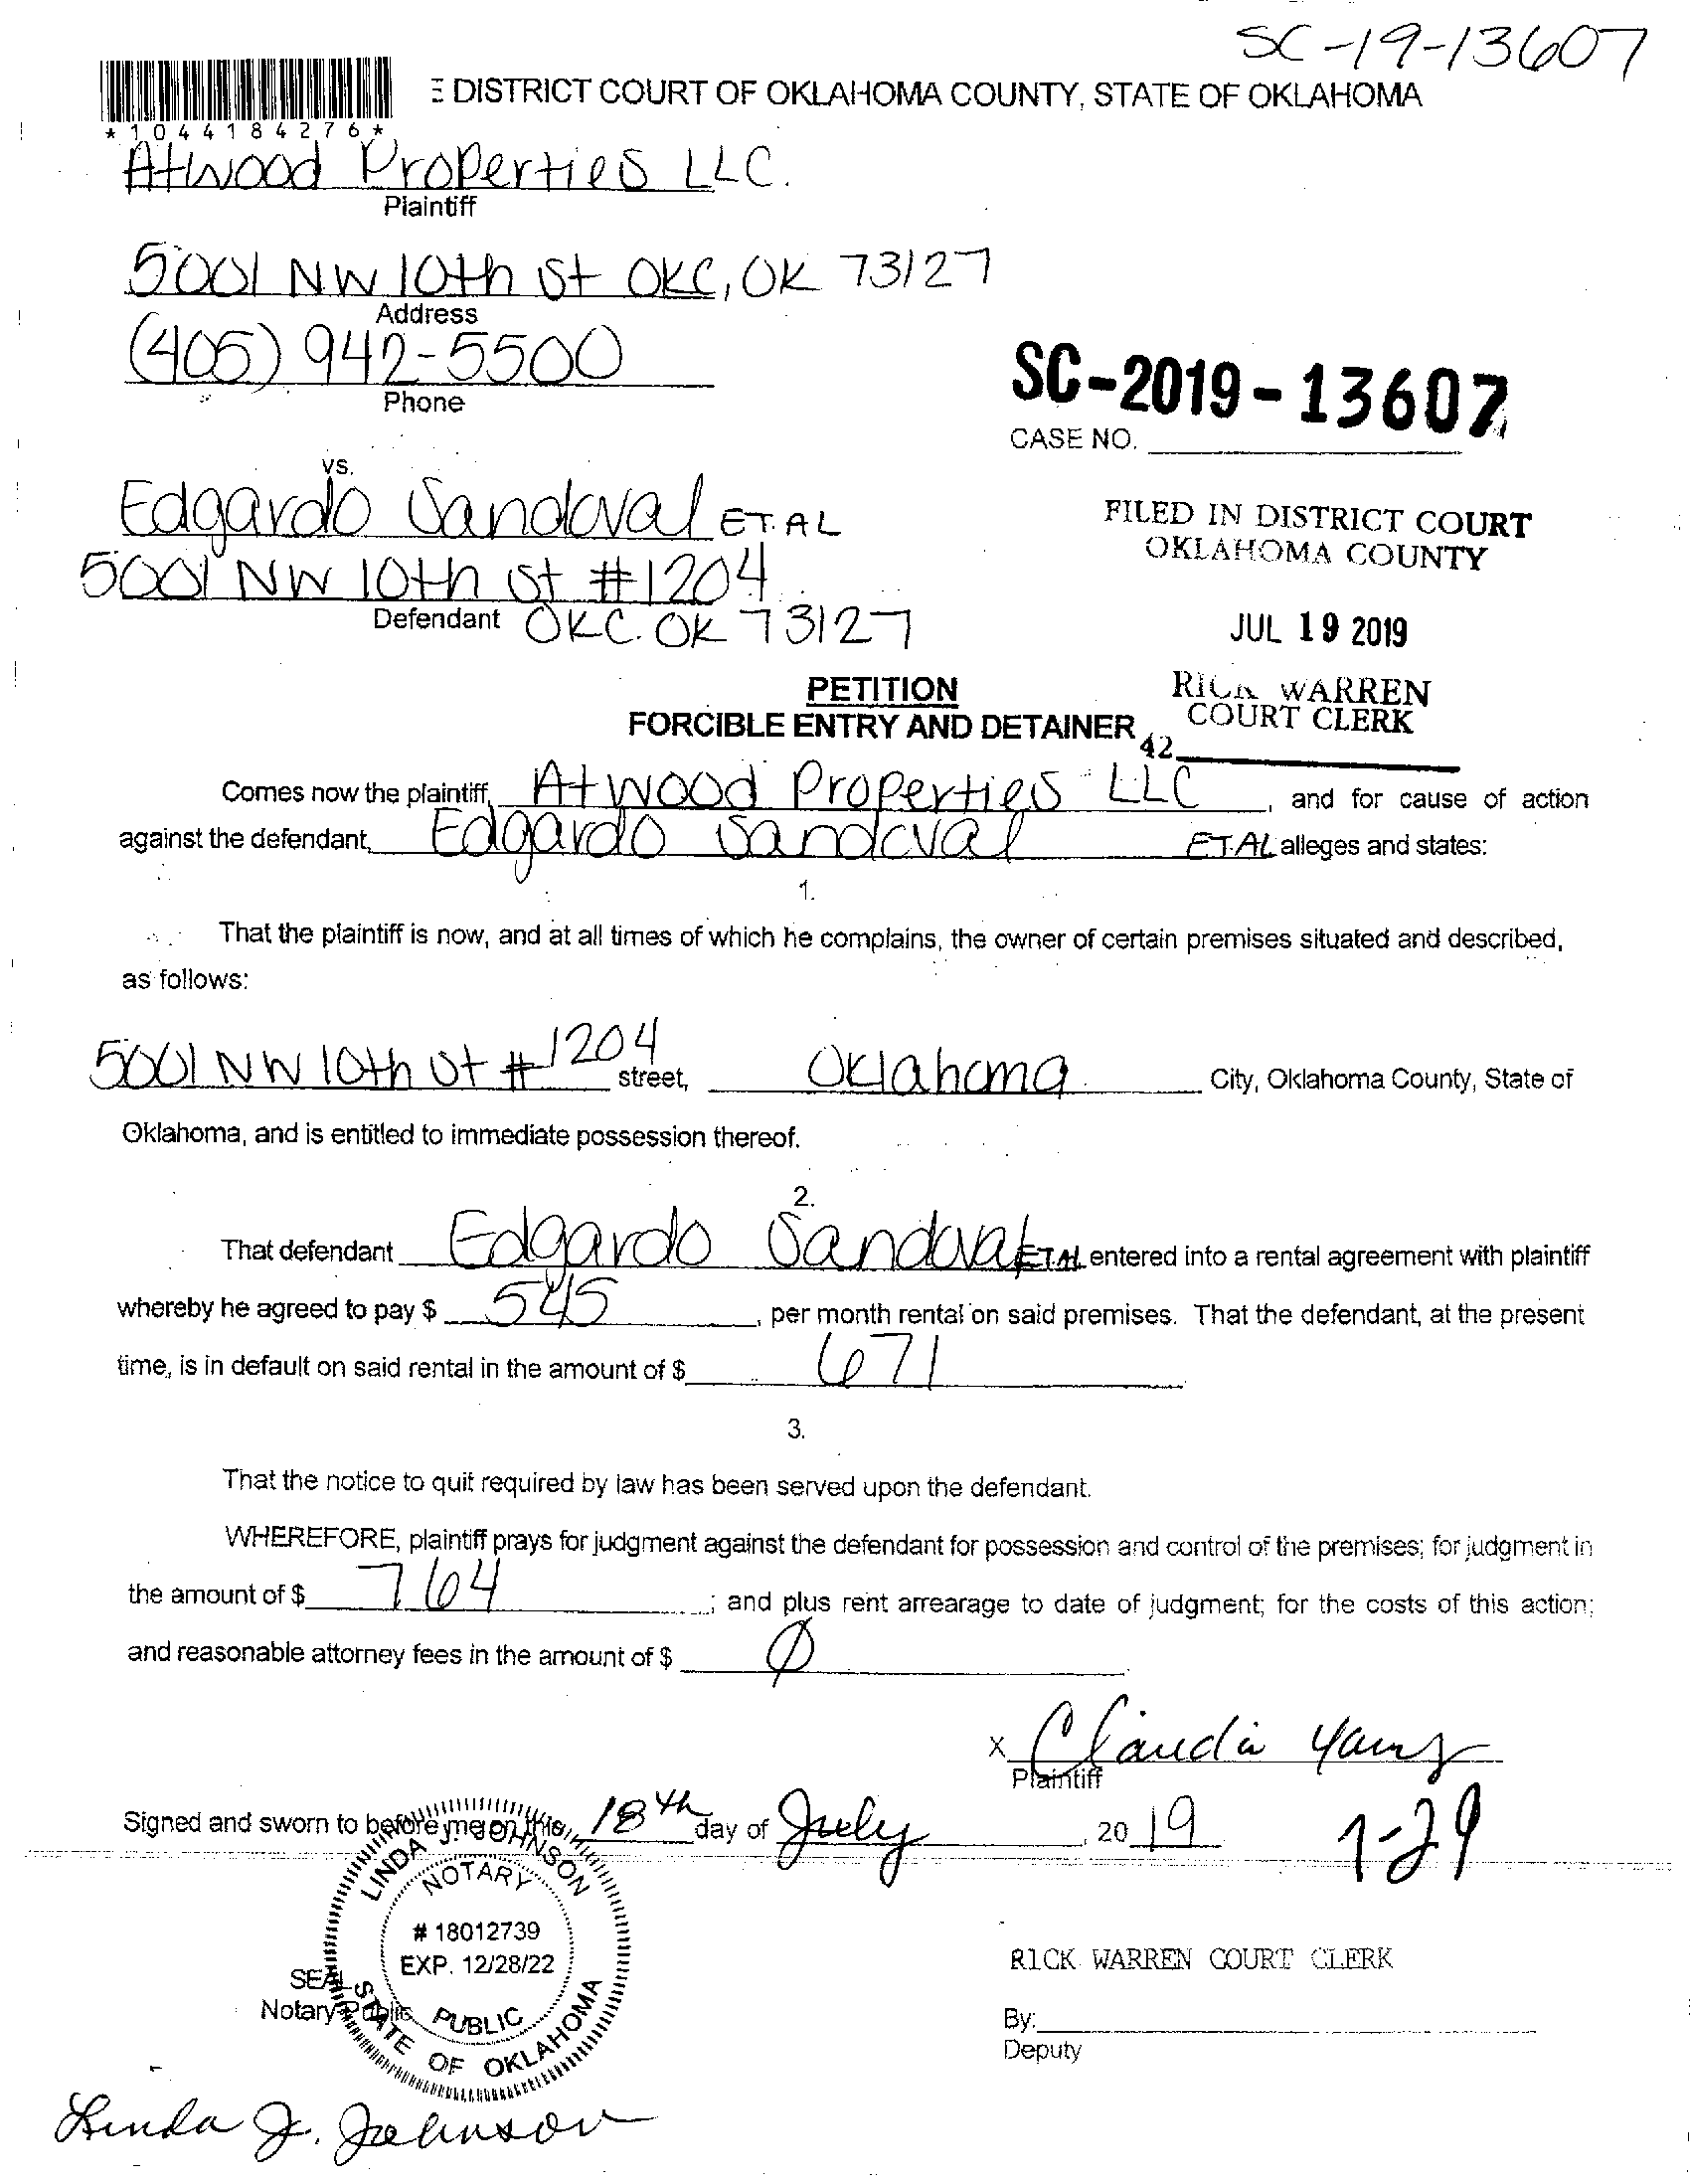 SC-19-13607
E DISTRICT COURT OF OKLAHOMA COUNTY, STATE OF OKLAHOMA
*1044184276*
Atwood Properties LLC.
Plaintiff
5001 NW 10th St OKC, OK 73127
Address
(405) 942-5500
Phone
SC-2019-13607
CASE NO.
vs.
Edgardo Sandoval ET.AL
5001 NW 10th St #1204
Defendant OKC. OK 73127
FILED IN DISTRICT COURT
OKLAHOMA COUNTY
JUL 19 2019
RICK WARREN
COURT CLERK
42
PETITION
FORCIBLE ENTRY AND DETAINER
Comes now the plaintiff, Atwood Properties LLC, and for cause of action
against the defendant, Edgardo Sandoval ET.AL alleges and states:
1.
That the plaintiff is now, and at all times of which he complains, the owner of certain premises situated and described,
as follows:
5001 NW 10th St #1204 street, Oklahoma City, Oklahoma County, State of
Oklahoma, and is entitled to immediate possession thereof.
2.
That defendant Edgardo Sandoval ET.AL entered into a rental agreement with plaintiff
whereby he agreed to pay $ 545, per month rental on said premises. That the defendant, at the present
time, is in default on said rental in the amount of $ 671
3.
That the notice to quit required by law has been served upon the defendant.
WHEREFORE, plaintiff prays for judgment against the defendant for possession and control of the premises; for judgment in
the amount of $ 764; and plus rent arrearage to date of judgment; for the costs of this action;
and reasonable attorney fees in the amount of $ Ø
X Claudia
Plaintiff
Signed and sworn to before me on this 18th day of July, 2019
7-29
LINDA J. JOHNSON
NOTARY
# 18012739
EXP. 12/28/22
PUBLIC
STATE OF OKLAHOMA
SEAL
Notary Public
RICK WARREN COURT CLERK
By:
Deputy
Linda J. Johnson